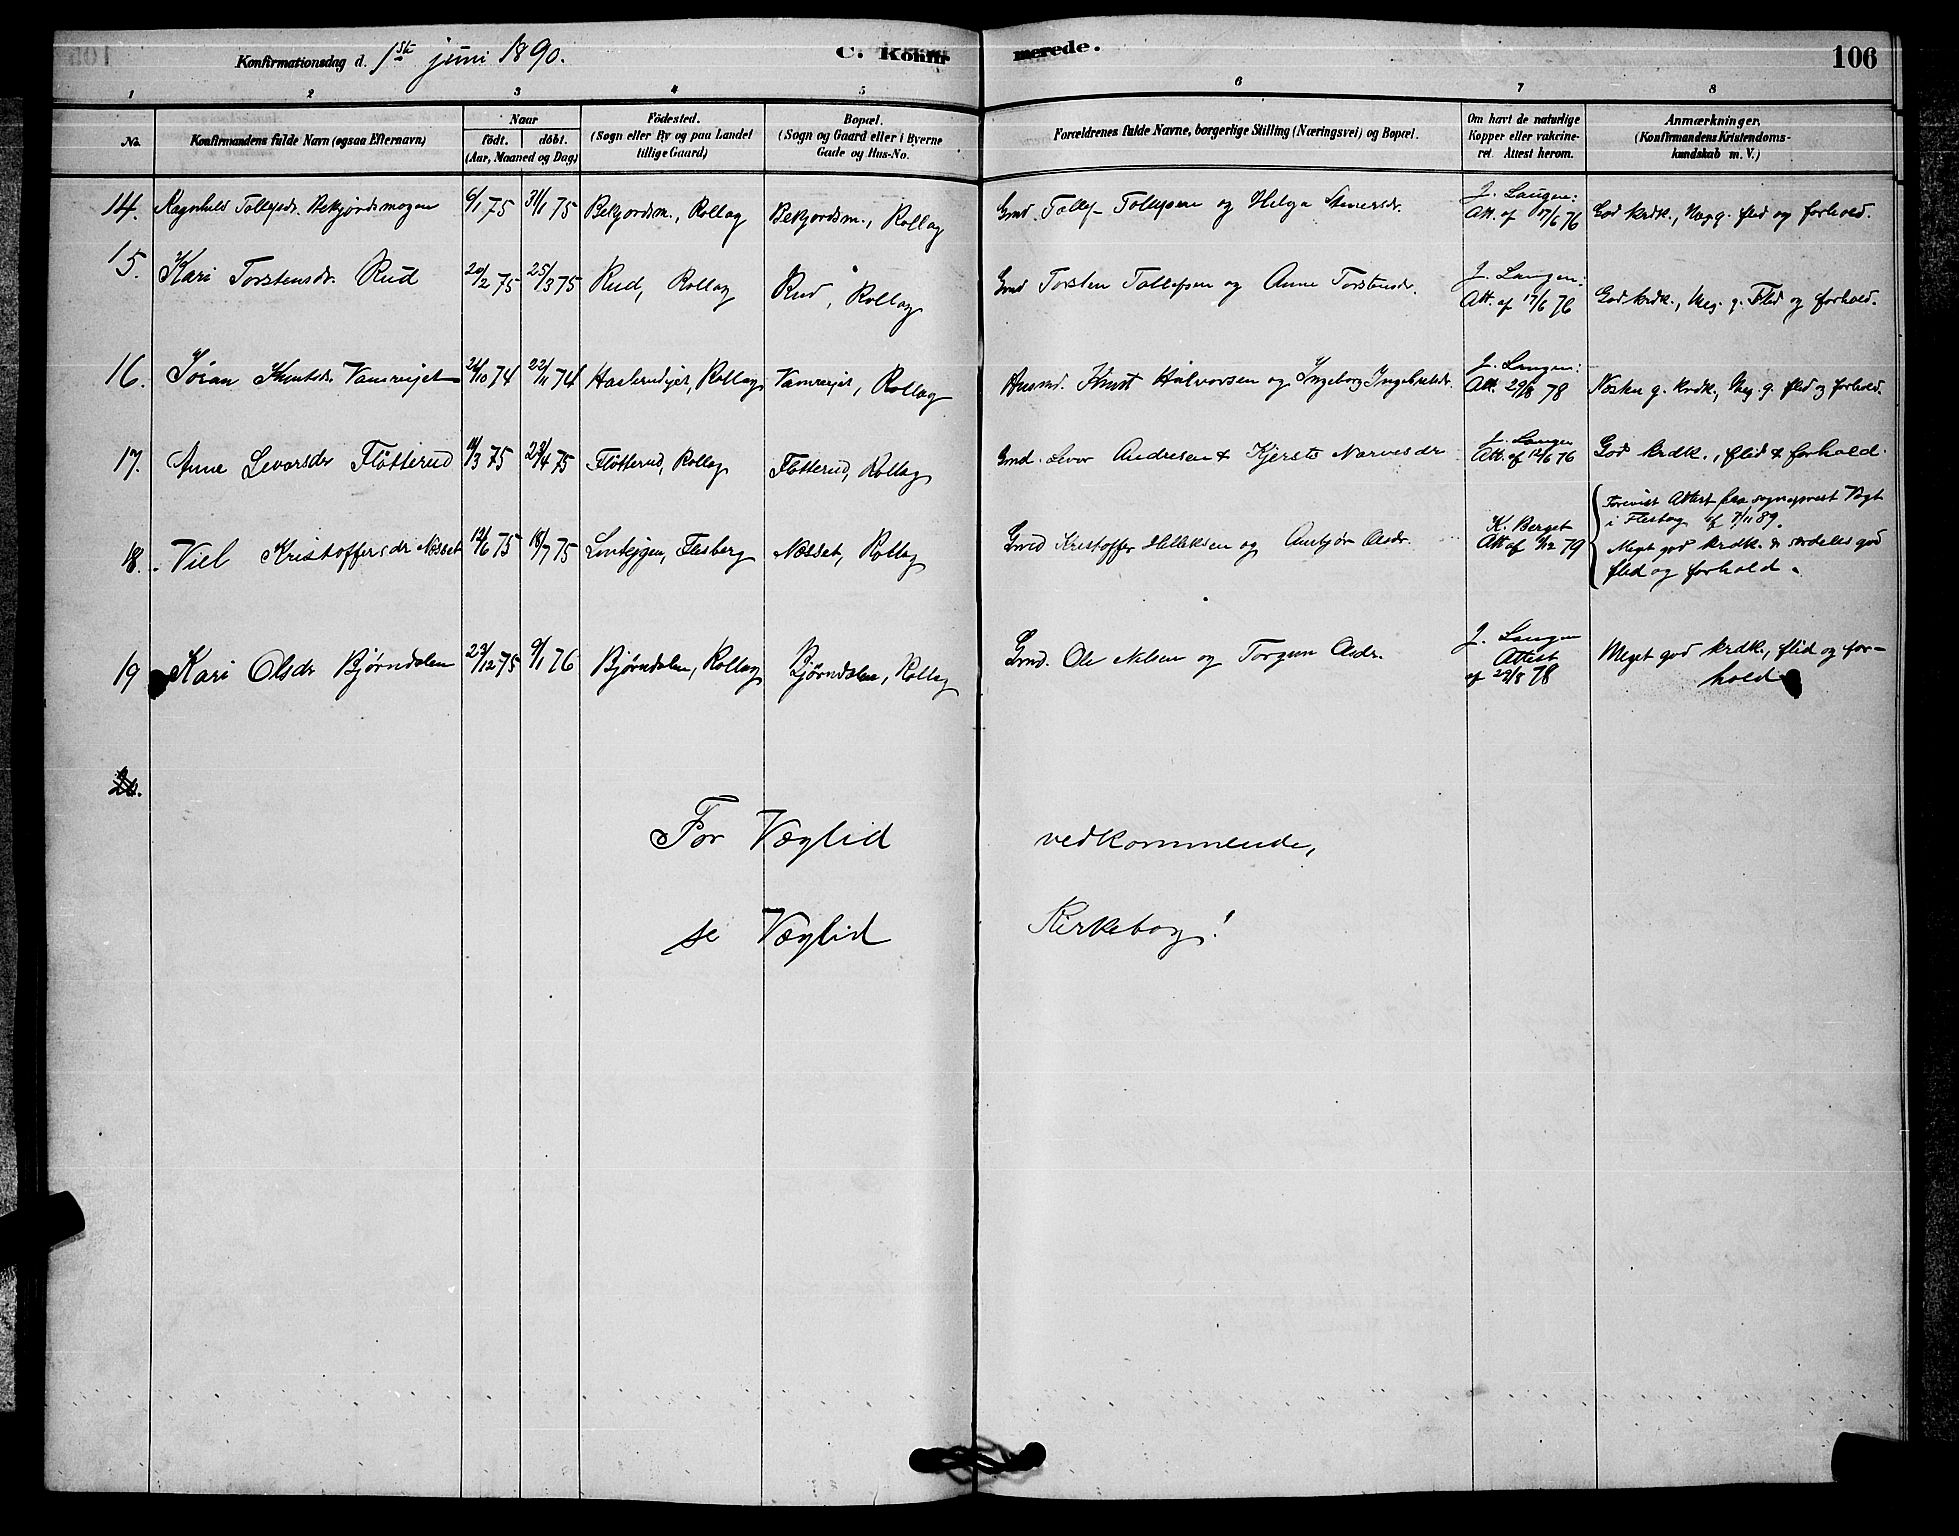 Konfirmationsdag d. 1ste juni 1890. C. Konfirmerede. 106
1 2 3 4 5 6 7 8
No. Konfirmandens fulde Navn (ogsaa Efternavn) Naar födt. döbt. (Aar, Maaned og Dag) Födested. (Sogn eller By og paa Landet tillige Gaard) Bopæl. (Sogn og Gaard eller i Byerne Gade og Hus-No. Forældrenes fulde Navne, borgerlige Stilling (Næringsvei) og Bopæl. Om havt de naturlige Kopper eller vakcineret. Attest herom. Anmærkninger, (Konfirmandens Kristendomskundskab m. V.)
14. Ragnhild Tollefsdr. Bekjordsmogen 6/1 75 31/1 75 Bekjordsm., Rollag Bekjordsm., Rollag Grmd. Tollef Tollefsen og Helga Steinersdr. J. Laugen: Att. af 17/6 76 God krdk., Meg. g. flid og forhold.
15. Kari Torstensdr. Rud 20/2 75 25/3 75 Rud, Rollag Rud, Rollag Grmd Torsten Tollefsen og Anne Torstensdr. J. Laugen: Att. af 17/6 76 God krdk., Meg. g. Flid og forhold.
16. Jøran Knutsdr. Vamrejet 74 22/11 74 Rollag Vamrejet, Rollag Husmd. Knut Halvorsen og Ingeborg Ingebretsdr. J. Laugen: Att. 29/8 78 Næsten g. krdk., Meg. g. flid og forhold.
17. Anne Levorsdr Fløtterud 75 23/4 75 Fløtterud, Rollag Fløtterud, Rollag Grmd. Levor Andresen & Kjersti Narvesdr J. Laugen Att. af 12/6 76 God krdk., flid & forhold.
18. Viel Kristoffersdr Næsset 12/6 75 18/7 75 Flesberg Næsset, Rollag Grmd Kristoffer Helleksen og Antjør Olsdr. K. Berget Att af 79 Forevist Attest fra sogneprest Vogt i Flesberg af 7/11 89. Meget god krdk. & særdeles god flid og forhold.
19 Kari Olsdr Bjørndalen 23/12 75 9/1 76 Bjørndalen, Rollag Bjørndalen, Rollag Grmd. Ole Nilsen og Torgun Olsdr. J. Laugen Attest af 29/8 78 Meget god krdk., flid og forhold
20.
For Væglid vedkommende,
se Væglid Kirkebog!